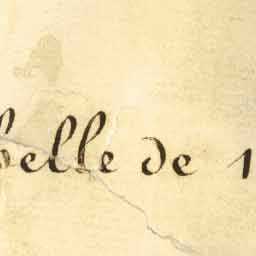 belle de 1